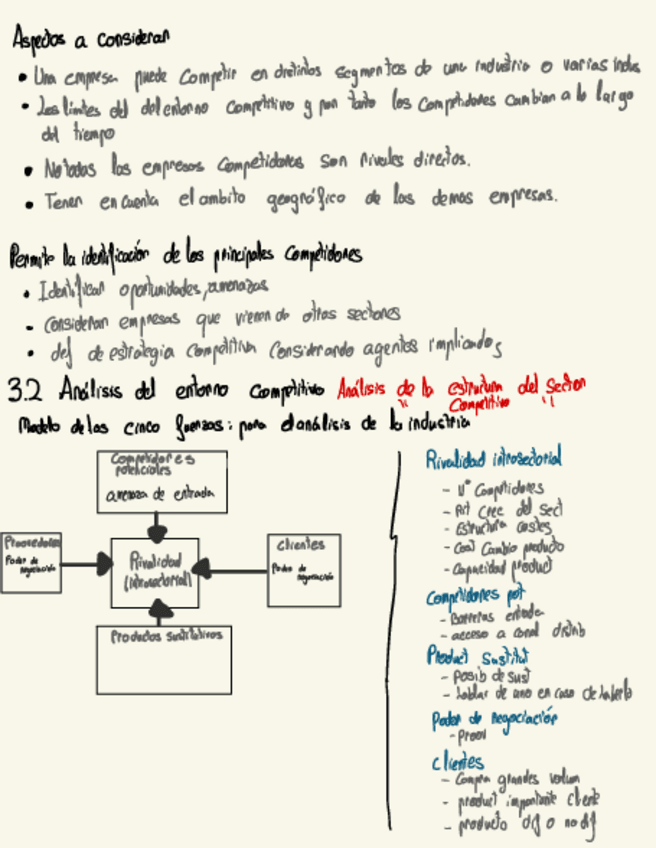 Aspectos a consideran
• Una empresa puede Competir en distintos segmentos de una industria o varias indus
• Los limites del del entorno Competitivo y por tanto los Competidores Cambian a lo largo
del tiempo
• No todas las empresas Competidores son rivales directos.
• Tener en cuenta el ambito geográfico de las demas empresas.
Permite la identificación de los principales Competidores
• Identifican oportunidades, amenazas
• Consideran empresas que vienen de otros sectores
• def de estrategia Competitiva Considerando agentes implicados
3.2 Análisis del entorno Competitivo Análisis de la estructura del Sector
" Competitivo "
Modelo de las cinco fuerzas: para el análisis de la industria
Competidores
potenciales
amenaza de entrada
Proveedores
Poder de
negociación
Rivalidad
(intrasectorial)
Clientes
Poder de
negociación
Productos sustitutivos
Rivalidad intrasectorial
- Nº Competidores
- Rit Crec del Sect
- Estructura costes
- Cost Cambio producto
- Capacidad product
Competidores pot
- Barreras entrada
- acceso a canal distrib
Product Sustitut
- Posib de sust
- hablar de uno en caso de haberlo
Poder de negociación
- Prov
Clientes
- Compra grandes volum
- product importante cliente
- producto dif o no dif